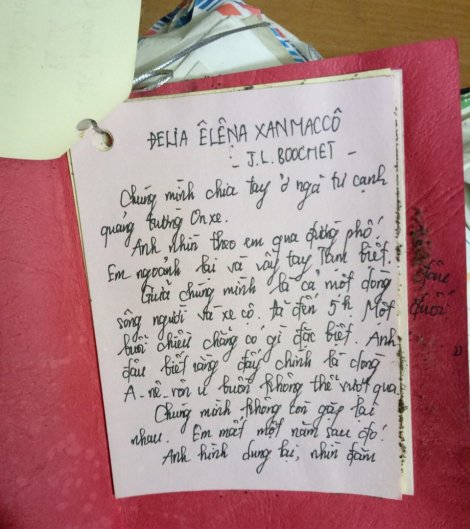 ĐELIA ÊLÊNA XANMACCÔ
- J.L. BOOCHET -
Chúng mình chia tay ở ngã tư cạnh
quảng trường Onxe.
Anh nhìn theo em qua đường phố.
Em ngoảnh lại và vẫy tay tạm biệt.
Giữa chúng mình là cả một dòng
sông người và xe cộ. Đã đến 5h. Một
buổi chiều chẳng có gì đặc biệt. Anh
đâu biết rằng đấy chính là dòng
A-nê-rôn u buồn không thể vượt qua
Chúng mình không còn gặp lại
nhau. Em mất một năm sau đó.
Anh hình dung lại, nhìn đăm